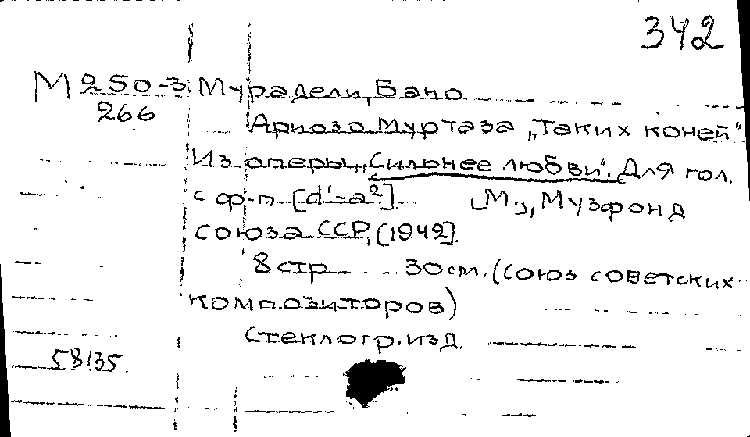 342
М 250-3 Мурадели, Вано
266
Ариозо Муртаза „Таких коней"
Из оперы „Сильнее любви". Для гол.
с ф-п. [d'-a²]. [М], Музфонд
союза ССР, [1942].
8 стр 30 см. (Союз советских
композиторов)
Стеклогр. изд
58135.